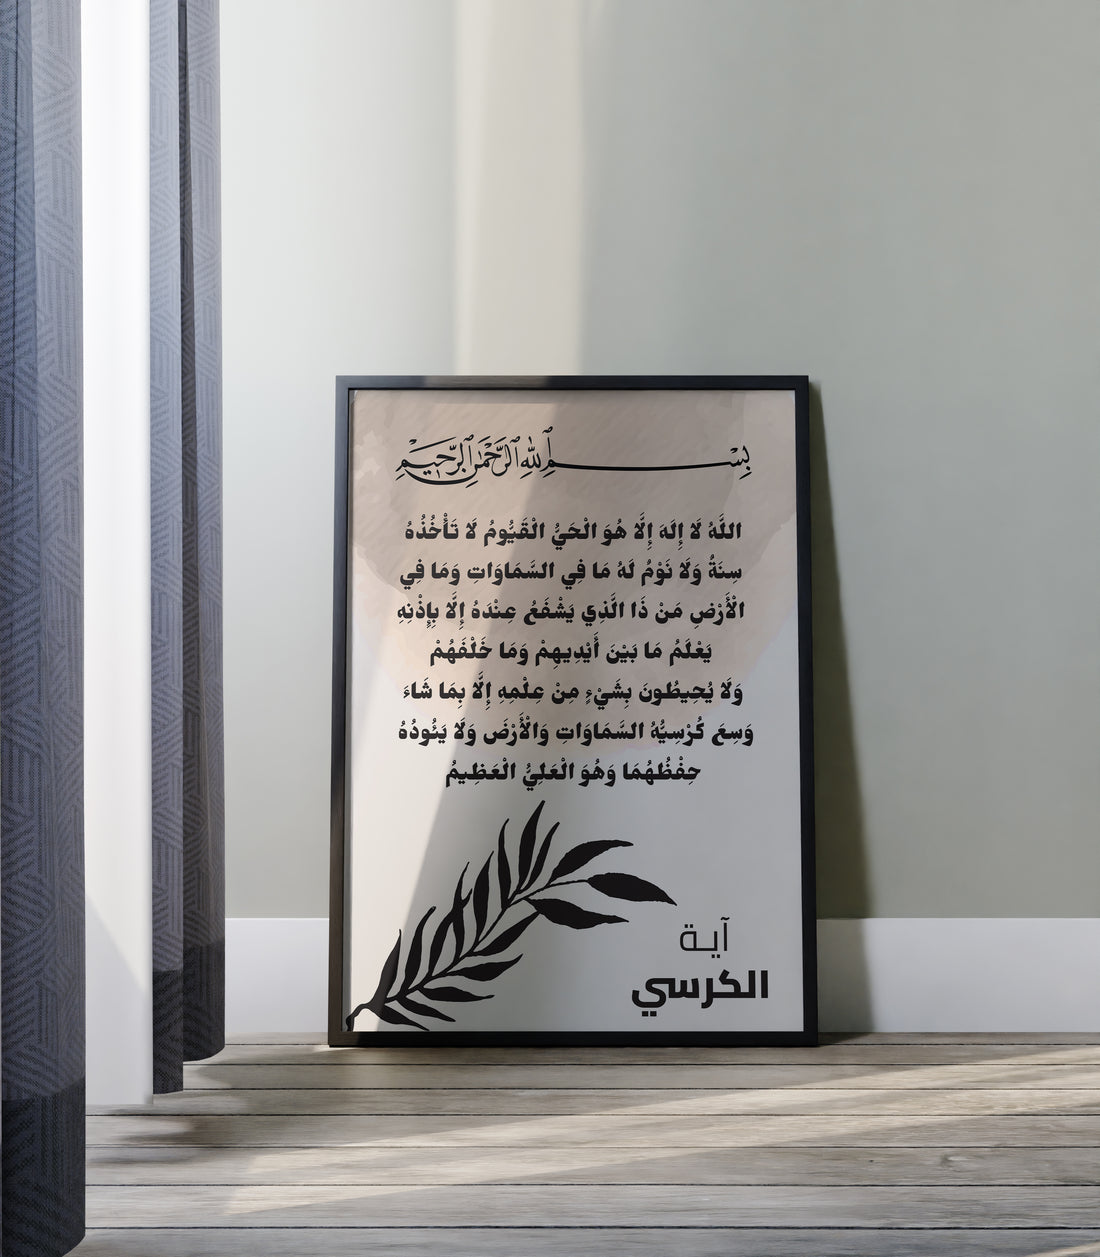 بِسْمِ اللهِ الرَّحْمٰنِ الرَّحِيمِ
اللَّهُ لَا إِلَهَ إِلَّا هُوَ الْحَيُّ الْقَيُّومُ لَا تَأْخُذُهُ
سِنَةٌ وَلَا نَوْمٌ لَهُ مَا فِي السَّمَاوَاتِ وَمَا فِي
الْأَرْضِ مَنْ ذَا الَّذِي يَشْفَعُ عِنْدَهُ إِلَّا بِإِذْنِهِ
يَعْلَمُ مَا بَيْنَ أَيْدِيهِمْ وَمَا خَلْفَهُمْ
وَلَا يُحِيطُونَ بِشَيْءٍ مِنْ عِلْمِهِ إِلَّا بِمَا شَاءَ
وَسِعَ كُرْسِيُّهُ السَّمَاوَاتِ وَالْأَرْضَ وَلَا يَئُودُهُ
حِفْظُهُمَا وَهُوَ الْعَلِيُّ الْعَظِيمُ
آية
الكرسي